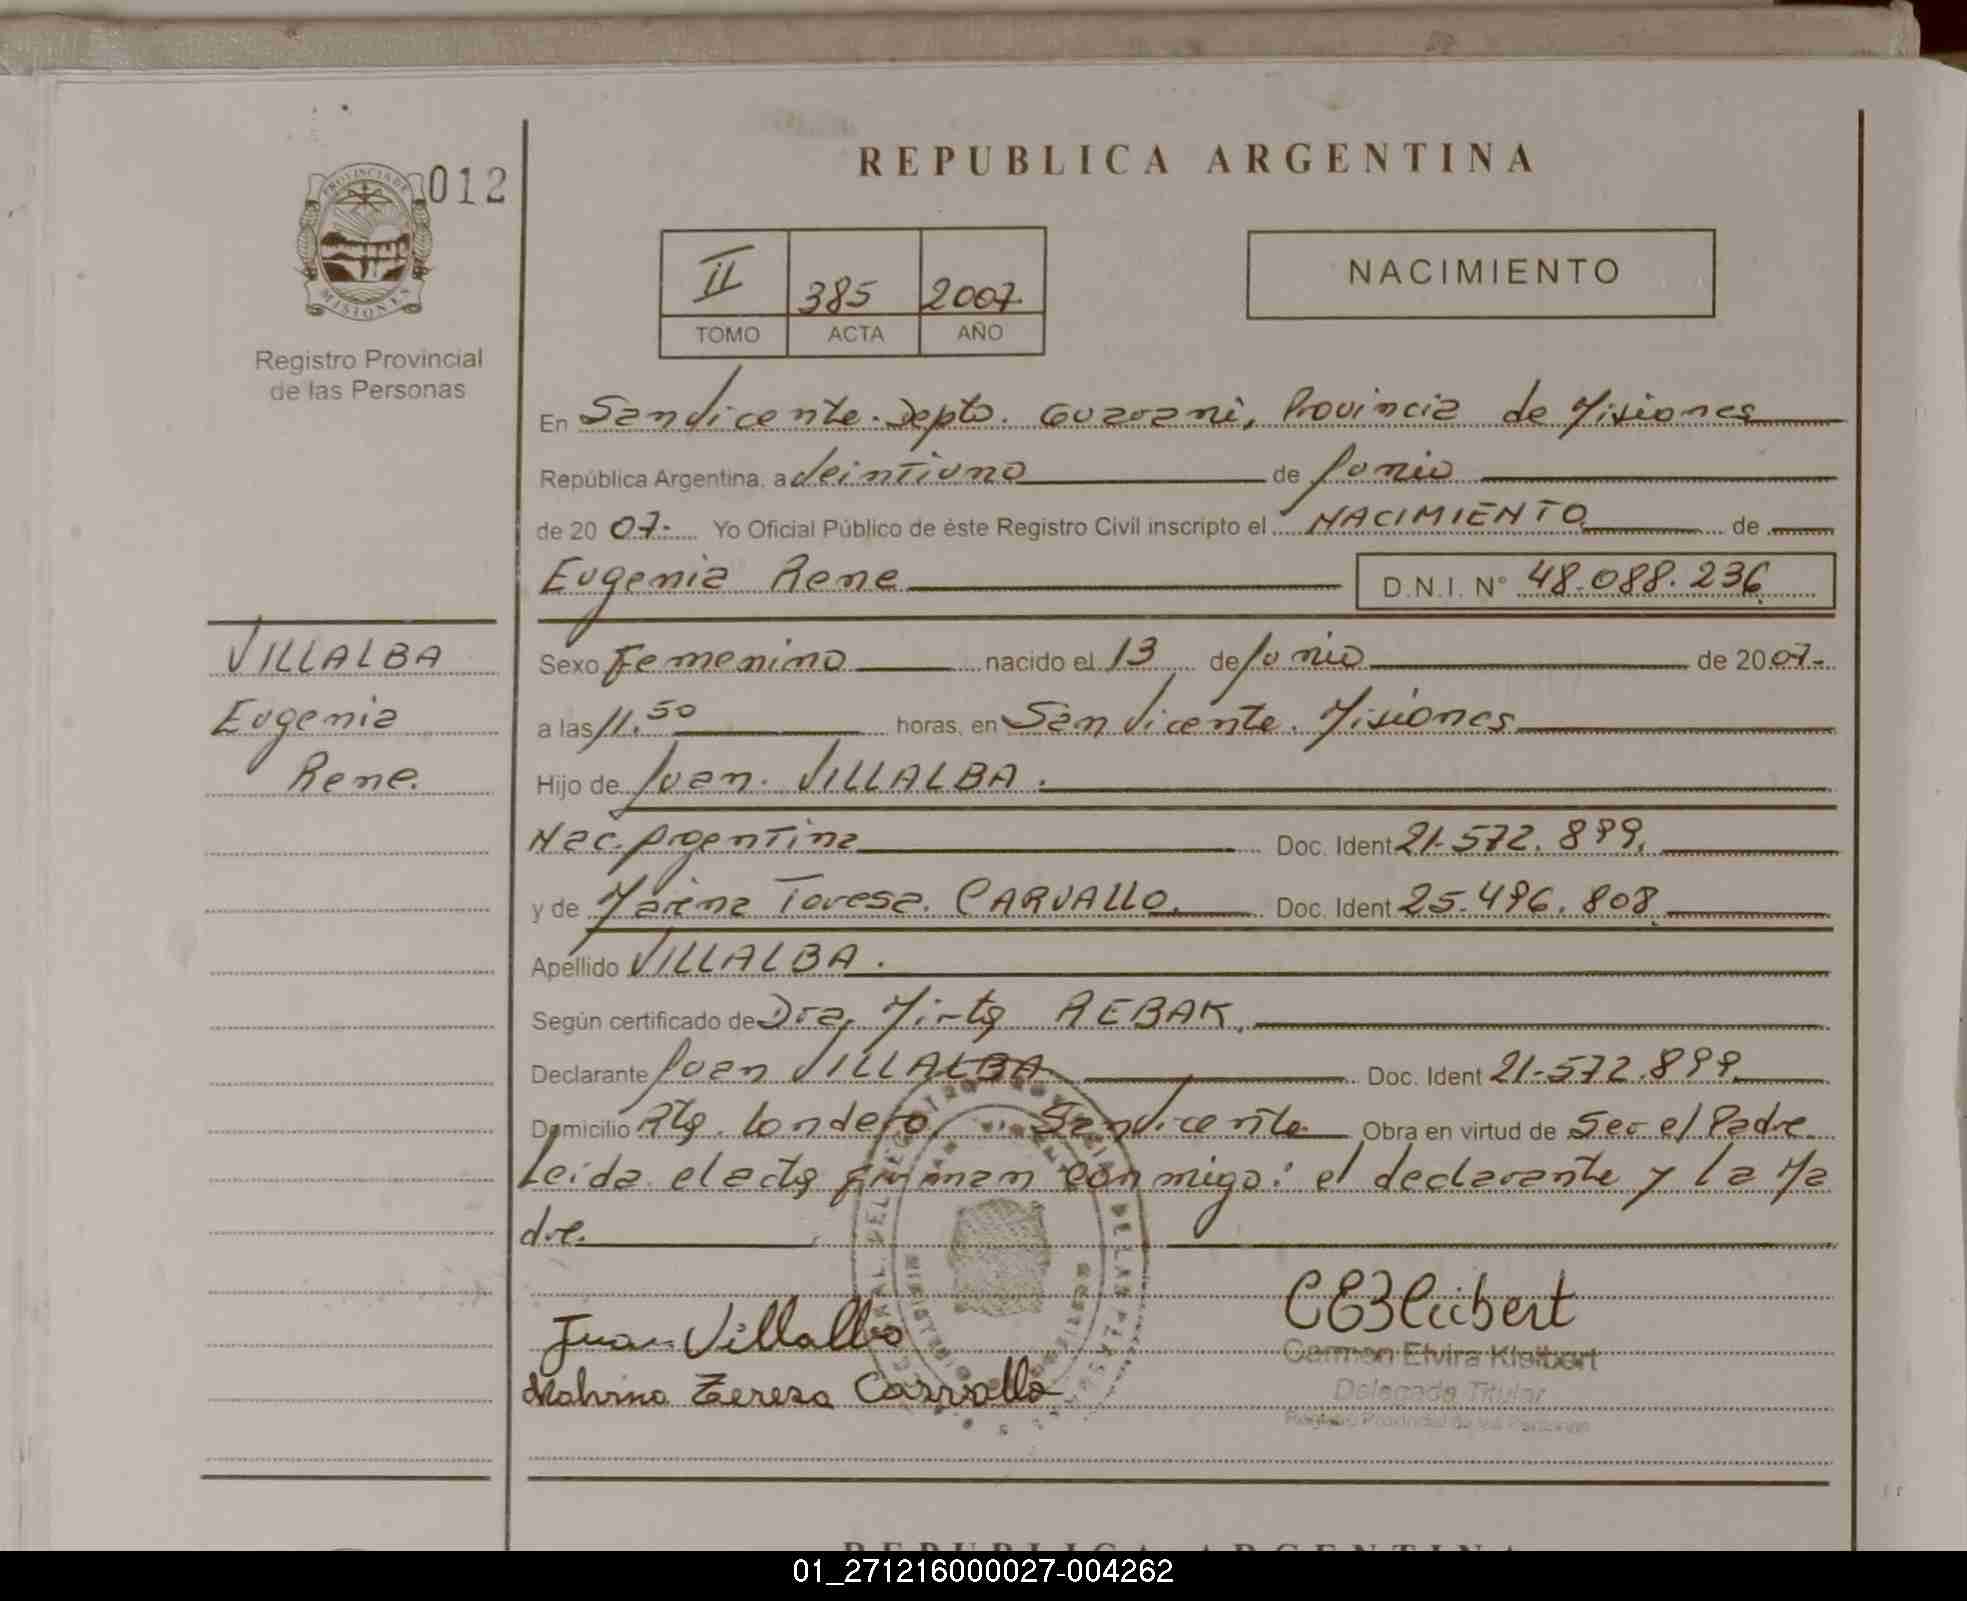 REPUBLICA ARGENTINA
012
PROVINCIA DE
MISIONES
Registro Provincial
de las Personas
II 385 2007
TOMO ACTA AÑO
NACIMIENTO
En San Vicente. Depto. Guaraní, Provincia de Misiones
República Argentina, a Veintiuno de Junio
de 20 07. Yo Oficial Público de éste Registro Civil inscripto el NACIMIENTO de
Eugenia Rene D.N.I. N° 48.088.236
VILLALBA
Eugenia
Rene.
Sexo Femenino nacido el 13 de Junio de 20 07.
a las 11.50 horas, en San Vicente. Misiones
Hijo de Juan. VILLALBA.
Nac. Argentina Doc. Ident 21.572.899.
y de Marina Teresa. CARVALLO. Doc. Ident 25.496.808
Apellido VILLALBA.
Según certificado de Dra. Mirta REBAK.
Declarante Juan VILLALBA Doc. Ident 21.572.899.
Domicilio Pta. Londero, San Vicente Obra en virtud de Ser el Padre
Leída el acta firman conmigo: el declarante y la Ma
dre.
Juan Villalba
Teresa Carvallo
CEKleibert
Carmen Elvira Kleibert
Delegada Titular
Registro Provincial de las Personas
REPUBLICA ARGENTINA
01_271216000027-004262